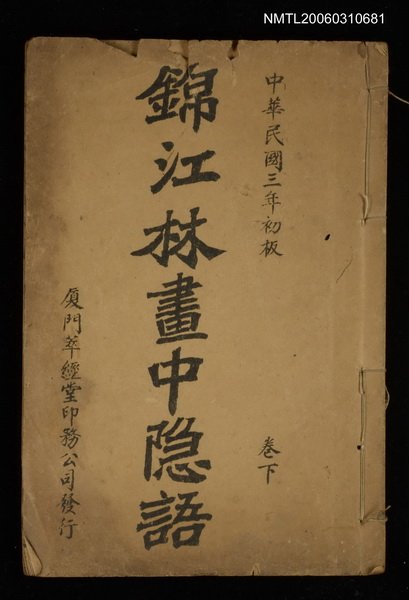 NMTL20060310681
中華民國三年初板
卷下
錦江林畫中隐語
厦門萃經堂印務公司發行